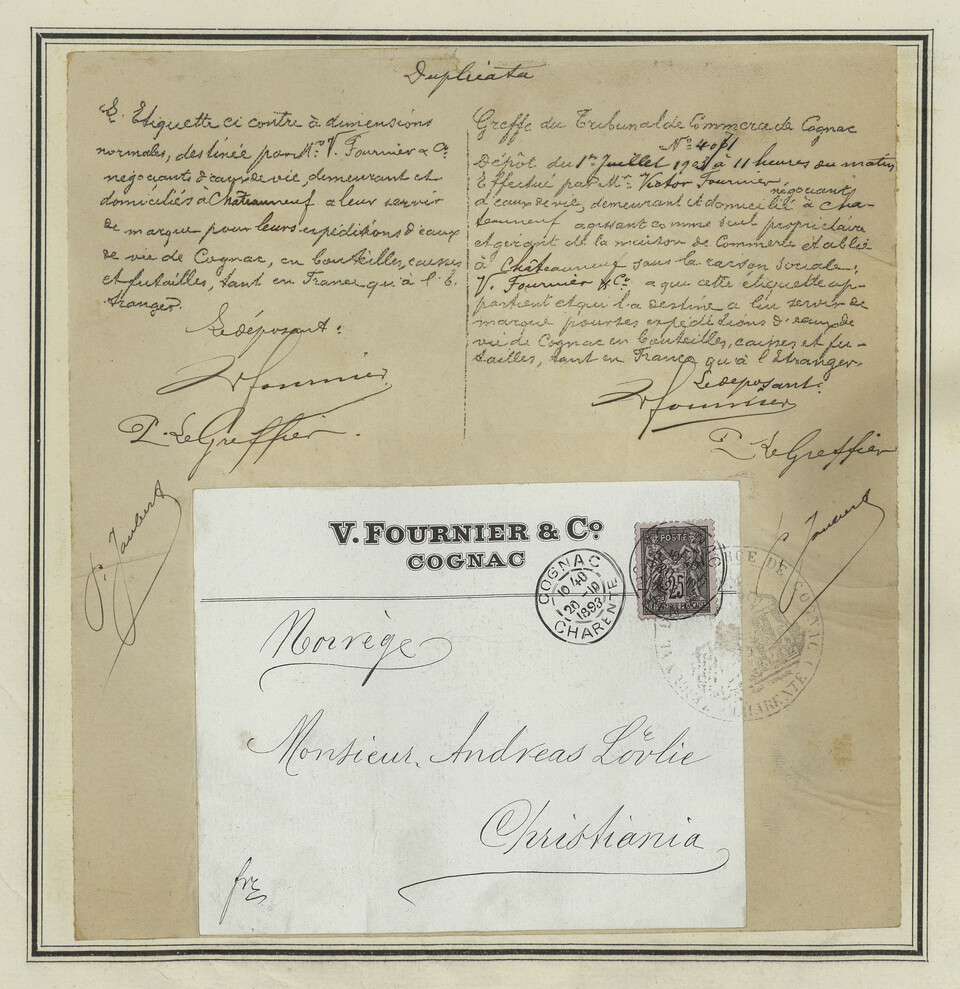 Duplicata
L'Etiquette ci contre à dimensions
normales, destinée par Mr. V. Fournier & Cie
négociants d'eaux de vie, demeurant et
domiciliés à Châteauneuf a leur servir
de marque pour leurs expéditions d'eaux
de vie de Cognac, en bouteilles, caisses
et futailles, tant en France qu'à l'E-
tranger.
Le déposant:
V Fournier
P. Le Greffier.
P. Jaubert
Greffe du Tribunal de Commerce de Cognac
No
Dépôt du 1er Juillet à 11 heures du matin
Effectué par Mr. Victor Fournier négociants
d'eaux de vie, demeurant et domicilié à Châ-
teauneuf agissant comme seul propriétaire
et gérant de la maison de Commerce établie
à Châteauneuf sous la raison sociale:
V. Fournier & Co. a qui cette étiquette ap-
partient et qui l'a destine a lui servir de
marque pour ses expéditions d'eaux de
vie de Cognac en bouteilles, caisses et fu-
tailles, tant en France qu'à l'Etranger.
Le déposant:
V Fournier
P. Le Greffier
P. Jaubert
V. FOURNIER & Co.
COGNAC
COGNAC
10 40
20 -10
1893
CHARENTE
POSTE
25
DE COGNAC
CHARENTE
Norvège
Monsieur Andreas Lövlie
Christiania